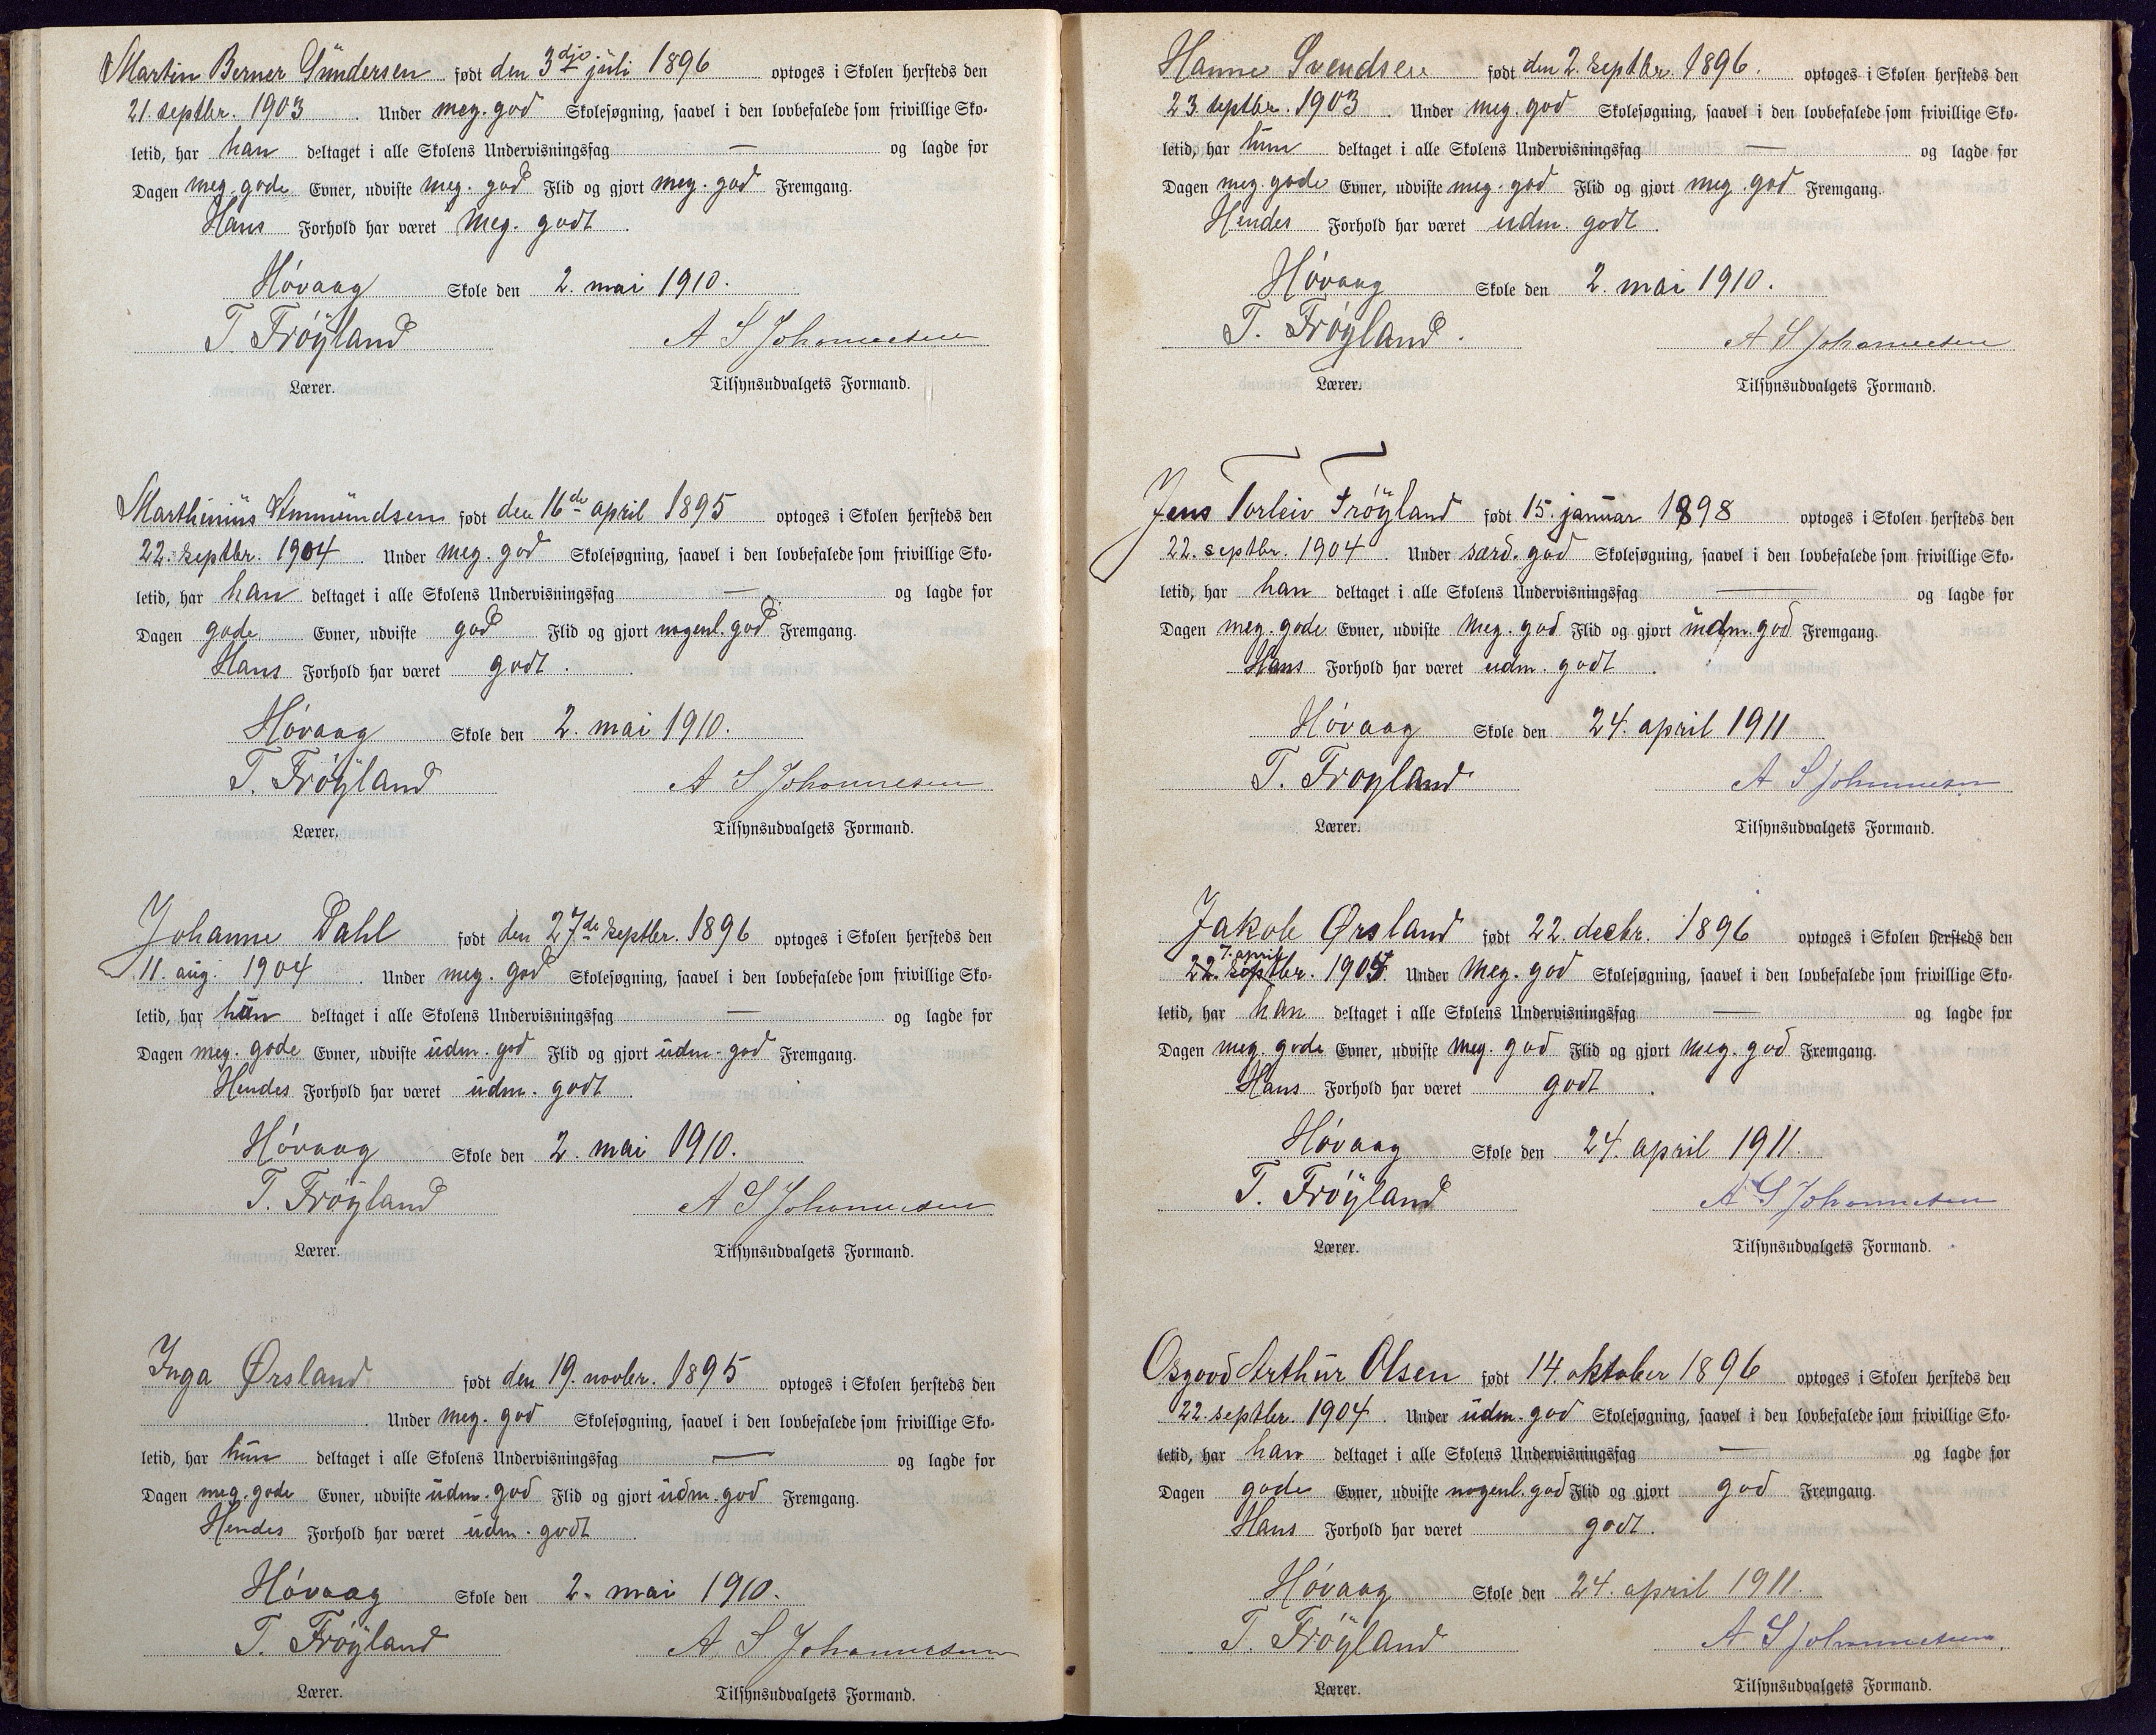 Martin Berner Gundersen født den 3dje juli 1896 optoges i Skolen hersteds den
21. septbr. 1903. Under meg. god Skolesøgning, saavel i den lovbefalede som frivillige Sko-
letid, har han deltaget i alle Skolens Undervisningsfag — og lagde for
Dagen meg. gode Evner, udviste meg. god Flid og gjort meg. god Fremgang.
Hans Forhold har været meg. godt.
Høvaag Skole den 2. mai 1910.
T. Frøÿland A S Johannesen
Lærer. Tilsynsudvalgets Formand.
Marthinius Ammundsen født den 16de april 1895 optoges i Skolen hersteds den
22. septbr. 1904. Under meg. god Skolesøgning, saavel i den lovbefalede som frivillige Sko-
letid, har han deltaget i alle Skolens Undervisningsfag — og lagde for
Dagen gode Evner, udviste god Flid og gjort nogenl. god Fremgang.
Hans Forhold har været godt.
Høvaag Skole den 2. mai 1910.
T. Frøÿland A S Johannesen
Lærer. Tilsynsudvalgets Formand.
Johanne Dahl født den 27de septbr. 1896 optoges i Skolen hersteds den
11. aug. 1904. Under meg. god Skolesøgning, saavel i den lovbefalede som frivillige Sko-
letid, har hun deltaget i alle Skolens Undervisningsfag — og lagde for
Dagen meg. gode Evner, udviste udm. god Flid og gjort udm. god Fremgang.
Hendes Forhold har været udm. godt.
Høvaag Skole den 2. mai 1910.
T. Frøÿland A S Johannesen
Lærer. Tilsynsudvalgets Formand.
Inga Ørsland født den 19. novbr. 1895 optoges i Skolen hersteds den
. Under meg. god Skolesøgning, saavel i den lovbefalede som frivillige Sko-
letid, har hun deltaget i alle Skolens Undervisningsfag — og lagde for
Dagen meg. gode Evner, udviste udm. god Flid og gjort udm. god Fremgang.
Hendes Forhold har været udm. godt.
Høvaag Skole den 2. mai 1910.
T. Frøÿland A S Johannesen
Lærer. Tilsynsudvalgets Formand.
Hanne Svendsen født den 2. septbr. 1896. optoges i Skolen hersteds den
23 septbr. 1903. Under meg. god Skolesøgning, saavel i den lovbefalede som frivillige Sko-
letid, har hun deltaget i alle Skolens Undervisningsfag — og lagde for
Dagen meg gode Evner, udviste meg. god Flid og gjort meg. god Fremgang.
Hendes Forhold har været udm. godt.
Høvaag Skole den 2. mai 1910.
T. Frøÿland. A S Johannesen
Lærer. Tilsynsudvalgets Formand.
Jens Torleiv Frøÿland født 15. januar 1898 optoges i Skolen hersteds den
22. septbr. 1904. Under særd. god Skolesøgning, saavel i den lovbefalede som frivillige Sko-
letid, har han deltaget i alle Skolens Undervisningsfag — og lagde for
Dagen meg. gode Evner, udviste meg. god Flid og gjort udm. god Fremgang.
Hans Forhold har været udm. godt.
Høvaag Skole den 24. april 1911
T. Frøyland A S Johannesen
Lærer. Tilsynsudvalgets Formand.
Jakob Ørsland født 22. decbr. 1896 optoges i Skolen hersteds den
7. april
22. septbr. 1905. Under meg. god Skolesøgning, saavel i den lovbefalede som frivillige Sko-
letid, har han deltaget i alle Skolens Undervisningsfag — og lagde for
Dagen meg. gode Evner, udviste meg. god Flid og gjort meg. god Fremgang.
Hans Forhold har været godt.
Høvaag Skole den 24. april 1911.
T. Frøÿland A S Johannesen
Lærer. Tilsynsudvalgets Formand.
Osgood Arthur Olsen født 14. oktober 1896 optoges i Skolen hersteds den
22. septbr. 1904. Under udm. god Skolesøgning, saavel i den lovbefalede som frivillige Sko-
letid, har han deltaget i alle Skolens Undervisningsfag — og lagde for
Dagen gode Evner, udviste nogenl. god Flid og gjort god Fremgang.
Hans Forhold har været godt.
Høvaag Skole den 24. april 1911.
T. Frøÿland A S Johannesen
Lærer. Tilsynsudvalgets Formand.